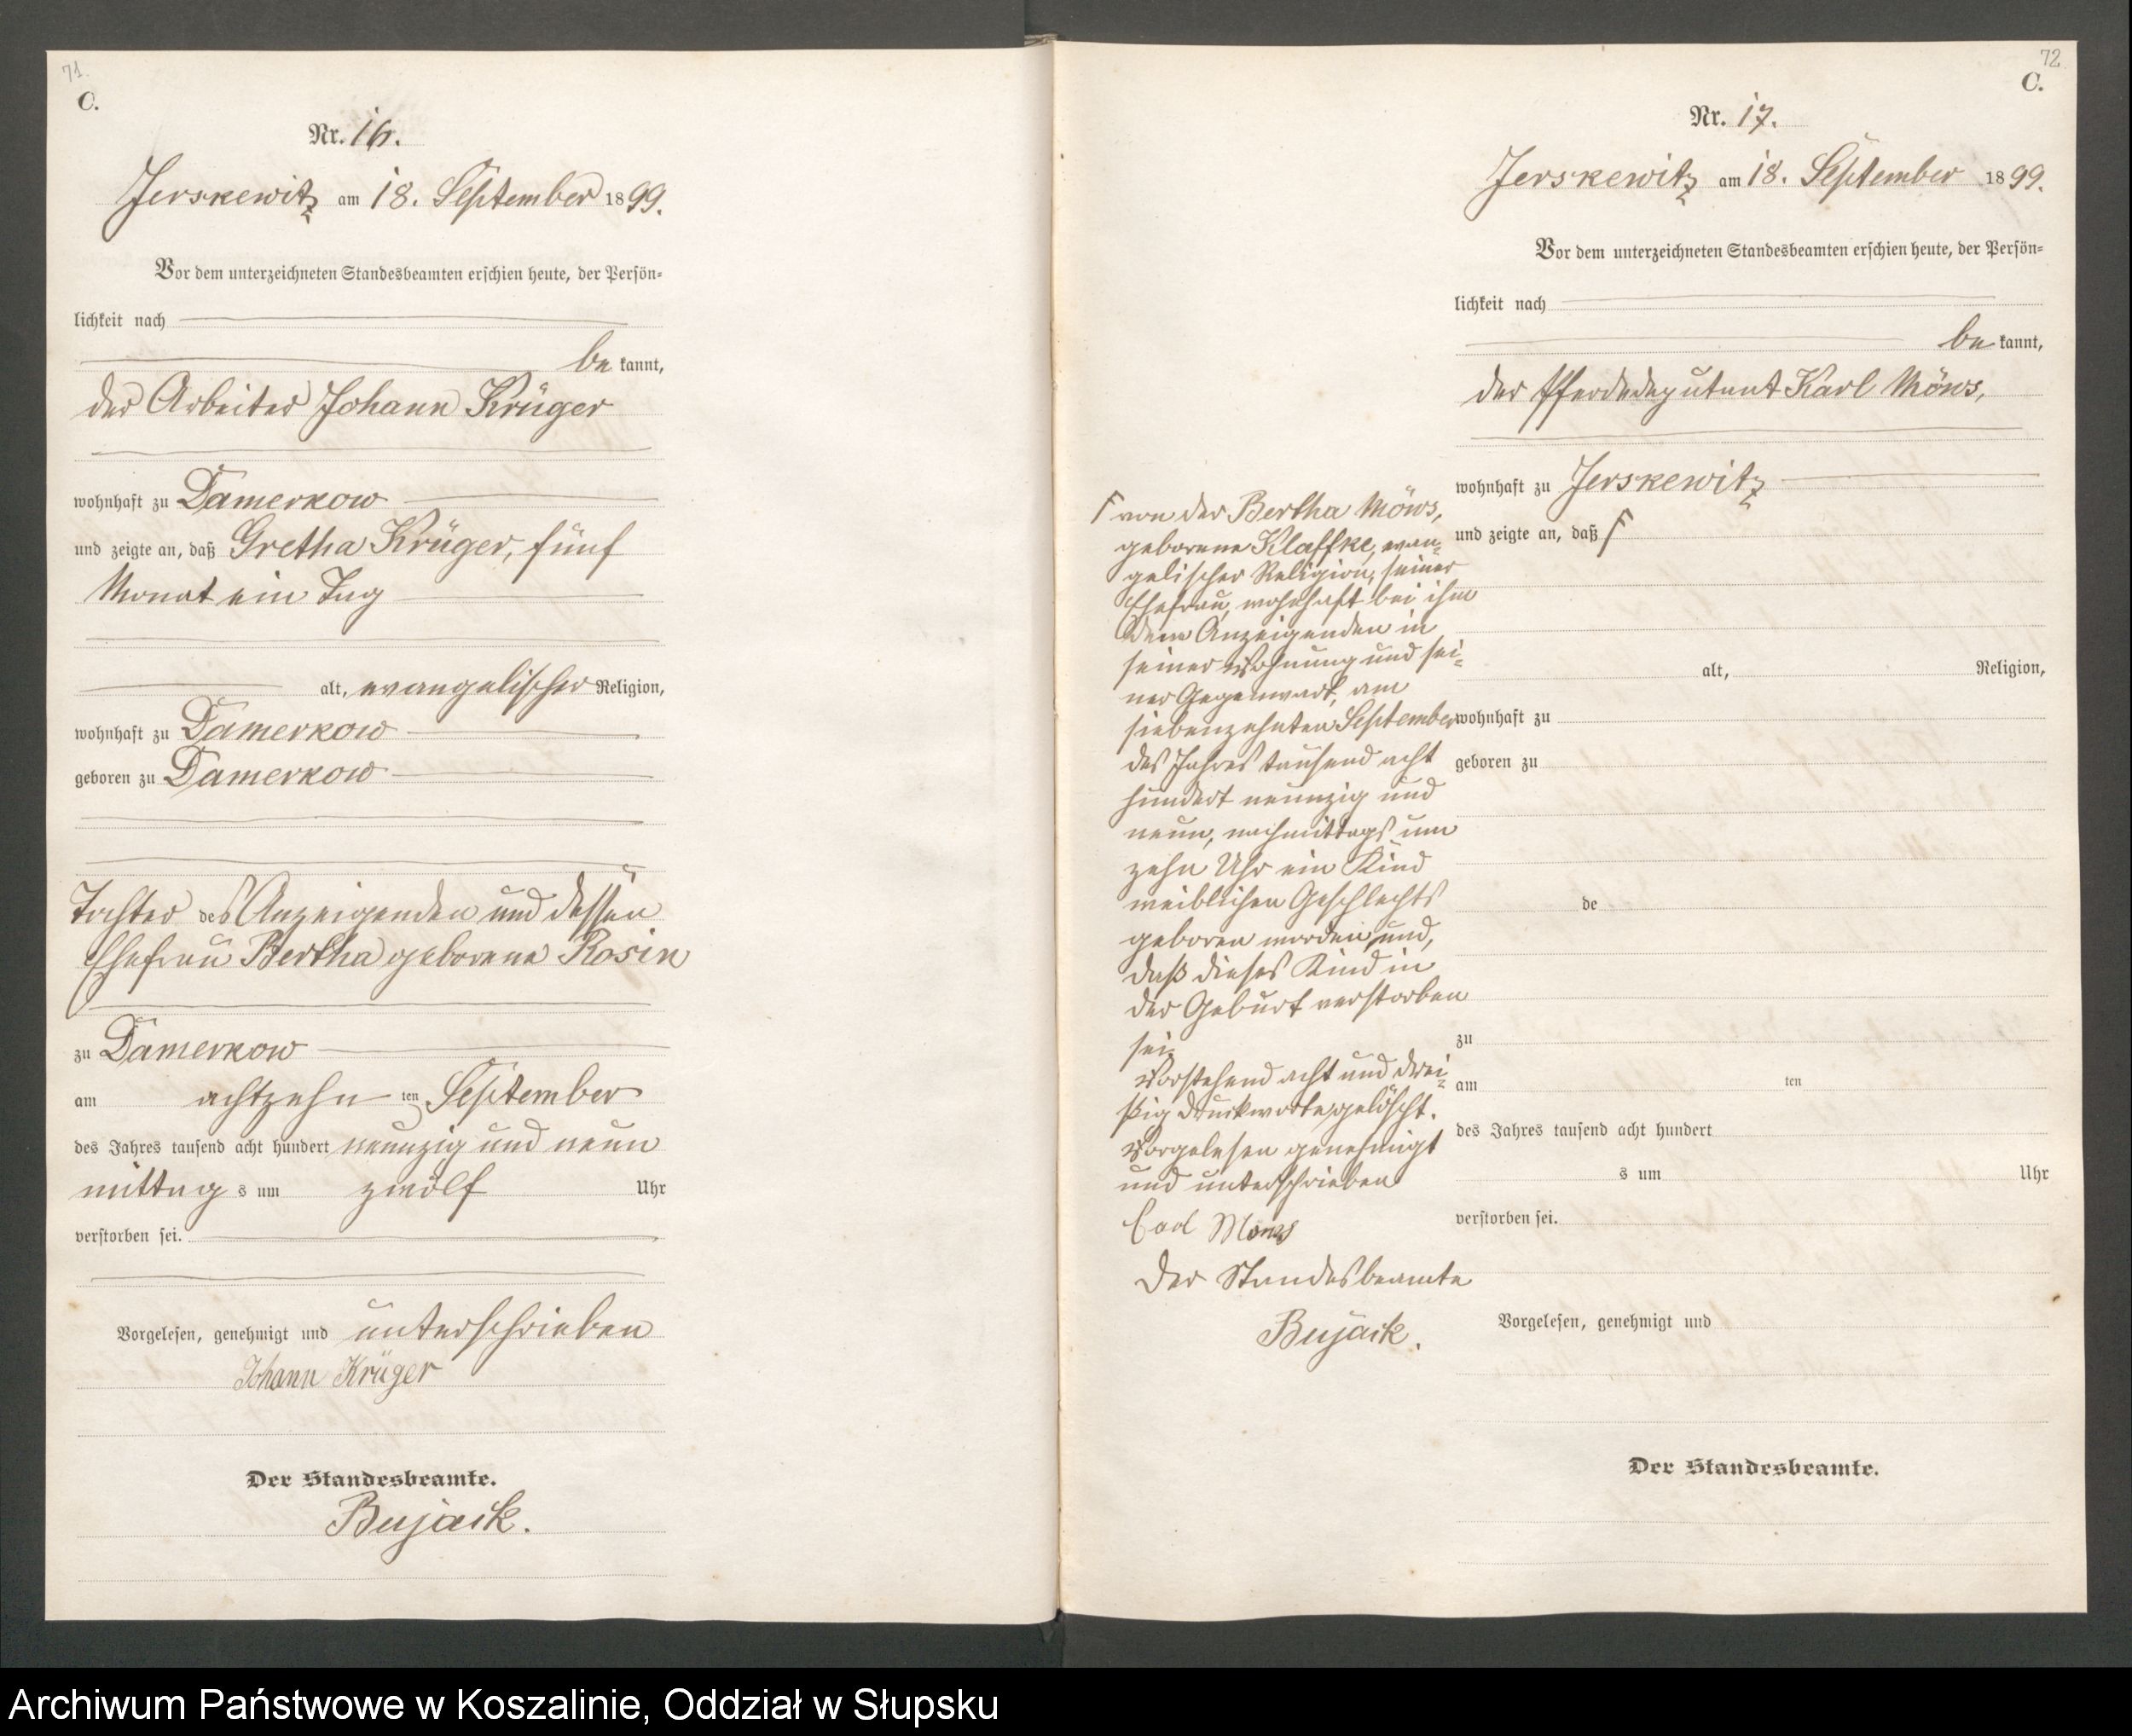 71.
C.
Nr. 16.
Jerskewitz am 18. September 1899.
Vor dem unterzeichneten Standesbeamten erschien heute, der Persön-
lichkeit nach
be kannt,
der Arbeiter Johann Krüger
wohnhaft zu Damerkow
und zeigte an, daß Gretha Krüger, fünf
Monat ein Tag
alt, evangelischer Religion,
wohnhaft zu Damerkow
geboren zu Damerkow
Tochter des Anzeigenden und dessen
Ehefrau Bertha geborene Rosin
zu Damerkow
am achtzehn ten September
des Jahres tausend acht hundert neunzig und neun
mittag s um zwölf Uhr
verstorben sei.
Vorgelesen, genehmigt und unterschrieben
Johann Krüger
Der Standesbeamte.
Bujack.
72
C.
Nr. 17.
Jerskewitz am 18. September 1899.
Vor dem unterzeichneten Standesbeamten erschien heute, der Persön-
lichkeit nach
be kannt,
der Pferdedeputant Karl Möws,
wohnhaft zu Jerskewitz
und zeigte an, daß Γ
alt, Religion,
wohnhaft zu
geboren zu
de
zu
am ten
des Jahres tausend acht hundert
s um Uhr
verstorben sei.
Vorgelesen, genehmigt und
Der Standesbeamte.
Γ von der Bertha Möws,
geborene Klaffke, evan-
gelischer Religion, seiner
Ehefrau, wohnhaft bei ihm
dem Anzeigenden in
seiner Wohnung und sei-
ner Gegenwart, am
siebenzehnten September
des Jahres tausend acht
hundert neunzig und
neun, nachmittags um
zehn Uhr ein Kind
weiblichen Geschlechts
geboren worden und,
daß dieses Kind in
der Geburt verstorben
sei.
Vorstehend acht und drei-
ßig Druckworte gelöscht.
Vorgelesen genehmigt
und unterschrieben
Carl Möws
Der Standesbeamte
Bujack.
Archiwum Państwowe w Koszalinie, Oddział w Słupsku